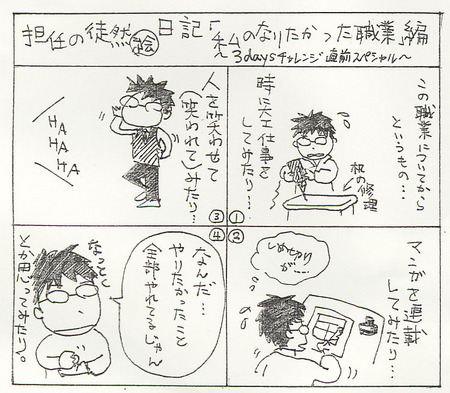 担任の徒然絵日記「私のなりたかった職業」編
～3daysチャレンジ直前スペシャル～
①
この職業についてから
というもの…
時に大工仕事を
してみたり…
机の修理
②
マンガを連載
してみたり…
しめきり
が…
③
人を笑わせて
(笑われて)みたり…
HA
HA
HA
④
なんだ…
やりたかったこと
全部やれてるじゃん
なっとく
とか思ってみたり。